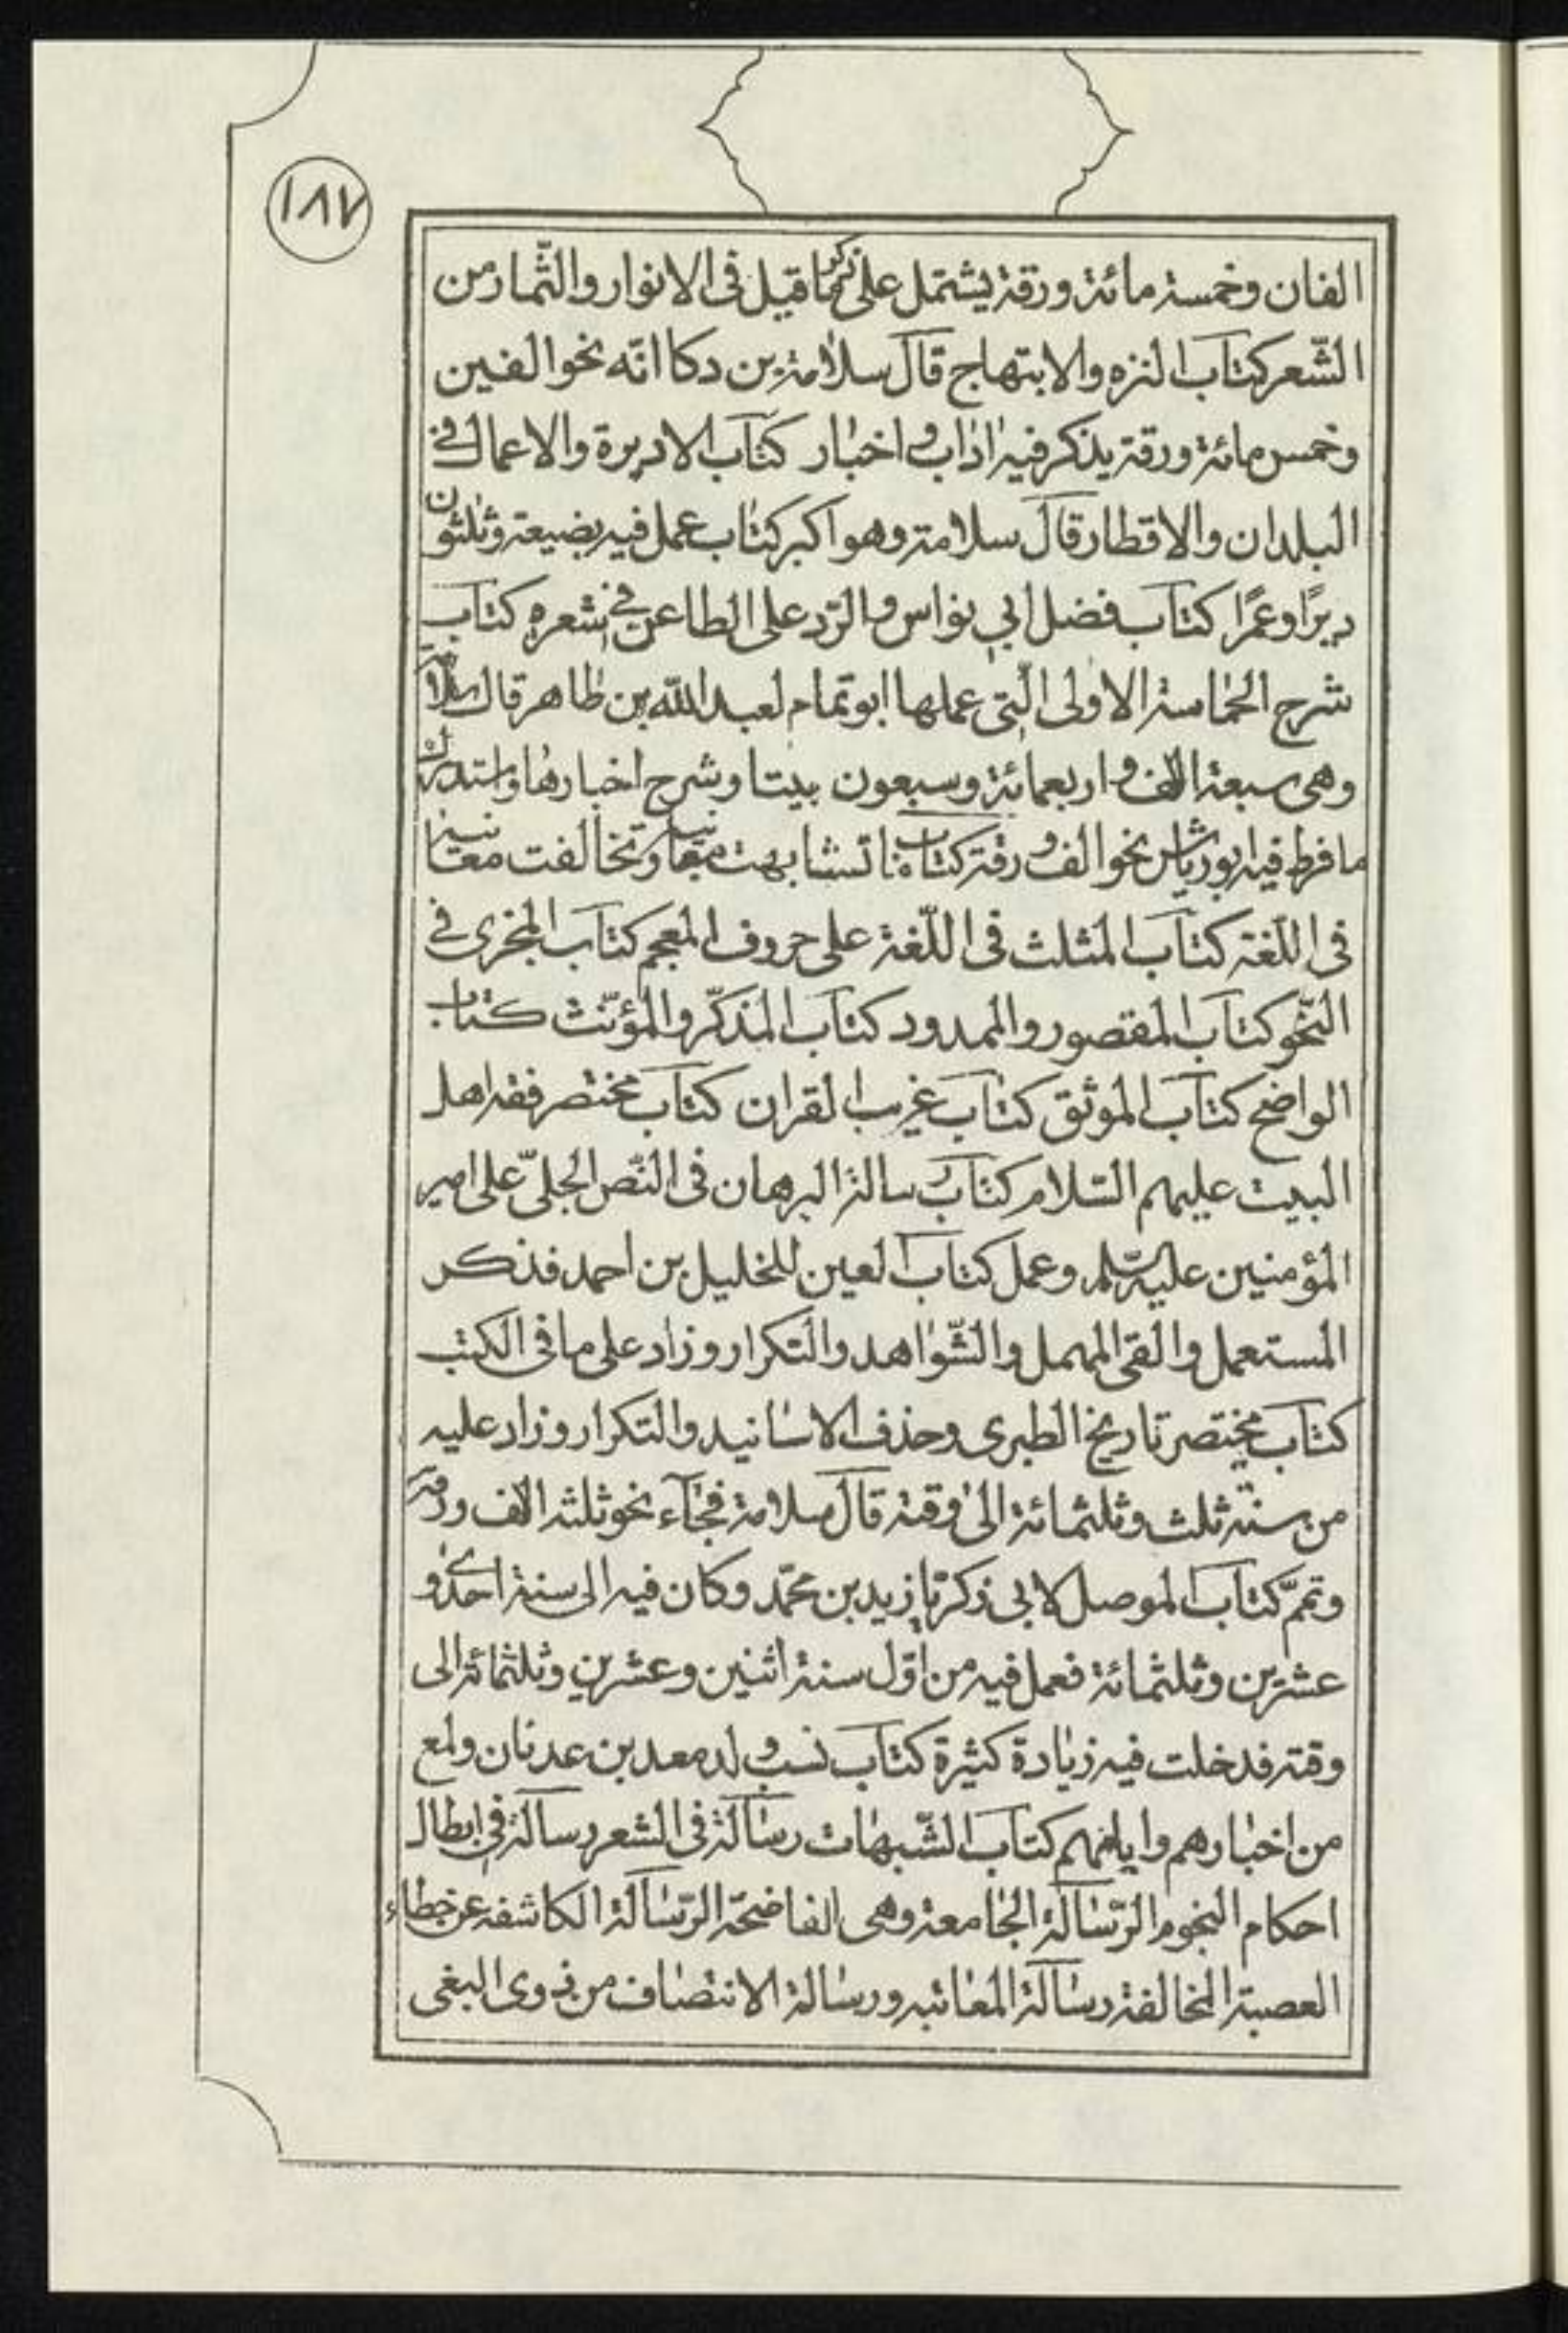 ١٨٧
الفان وخمسة مائة ورقة يشتمل على ذكر ما قيل فى الانوار والثّمار من
الشّعر كتاب النزه والابتهاج قال سلامة بن دكا انّه نحو الفين
وخمس مائة ورقة يذكر فيه اداب و اخبار كتاب الاديرة والاعمال فى
البلدان والاقطار قال سلامة وهو اكبر كتاب عمل فيه بضيعة وثلثون
ديرًا وعمرًا كتاب فضل ابى نواس والرّد على الطاعن فى شعره كتاب
شرح الحماسة الاولى الّتى عملها ابو تمام لعبد الله بن طاهر قال سلامة
وهى سبعة الاف و اربعمائة وسبعون بيتا وشرح اخبارها واستدرك
ما فرط فيه ابو رياش نحو الف ورقة كتاب ما تشابهت مبانيه وتخالفت معانيه
فى اللّغة كتاب المثلث فى اللّغة على حروف المعجم كتاب المجزى فى
النّحو كتاب المقصور والممدود كتاب المذكّر والمؤنّث كتاب
الواضح كتاب الموثق كتاب غريب القران كتاب مختصر فقه اهل
البيت عليهم السّلام كتاب رسالة البرهان فى النّص الجلىّ على امير
المؤمنين عليه السّلم وعمل كتاب العين للخليل بن احمد فذكر
المستعمل والقى المهمل والشّواهد والتكرار وزاد على ما فى الكتب
كتاب مختصر تاريخ الطبرى وحذف الاسانيد والتكرار وزاد عليه
من سنة ثلث وثلثمائة الى وقته قال سلامة فجاء نحو ثلثه الاف ورقة
وتمّم كتاب الموصل لابى زكريّا زيد بن محمّد وكان فيه الى سنة احدى و
عشرين وثلثمائة فعمل فيه من اوّل سنة اثنين وعشرين وثلثمائة الى
وقته فدخلت فيه زيادة كثيرة كتاب نسب ولد معد بن عدنان ولمع
من اخبارهم وايامهم كتاب الشّبهات رسالة فى الشعر رسالة فى ابطال
احكام النجوم الرّسالة الجامعة وهى الفاضحة الرّسالة الكاشفه عن خطاء
العصبة المخالفة رسالة المعاتبه ورسالة الانتصاف من ذوى البغى